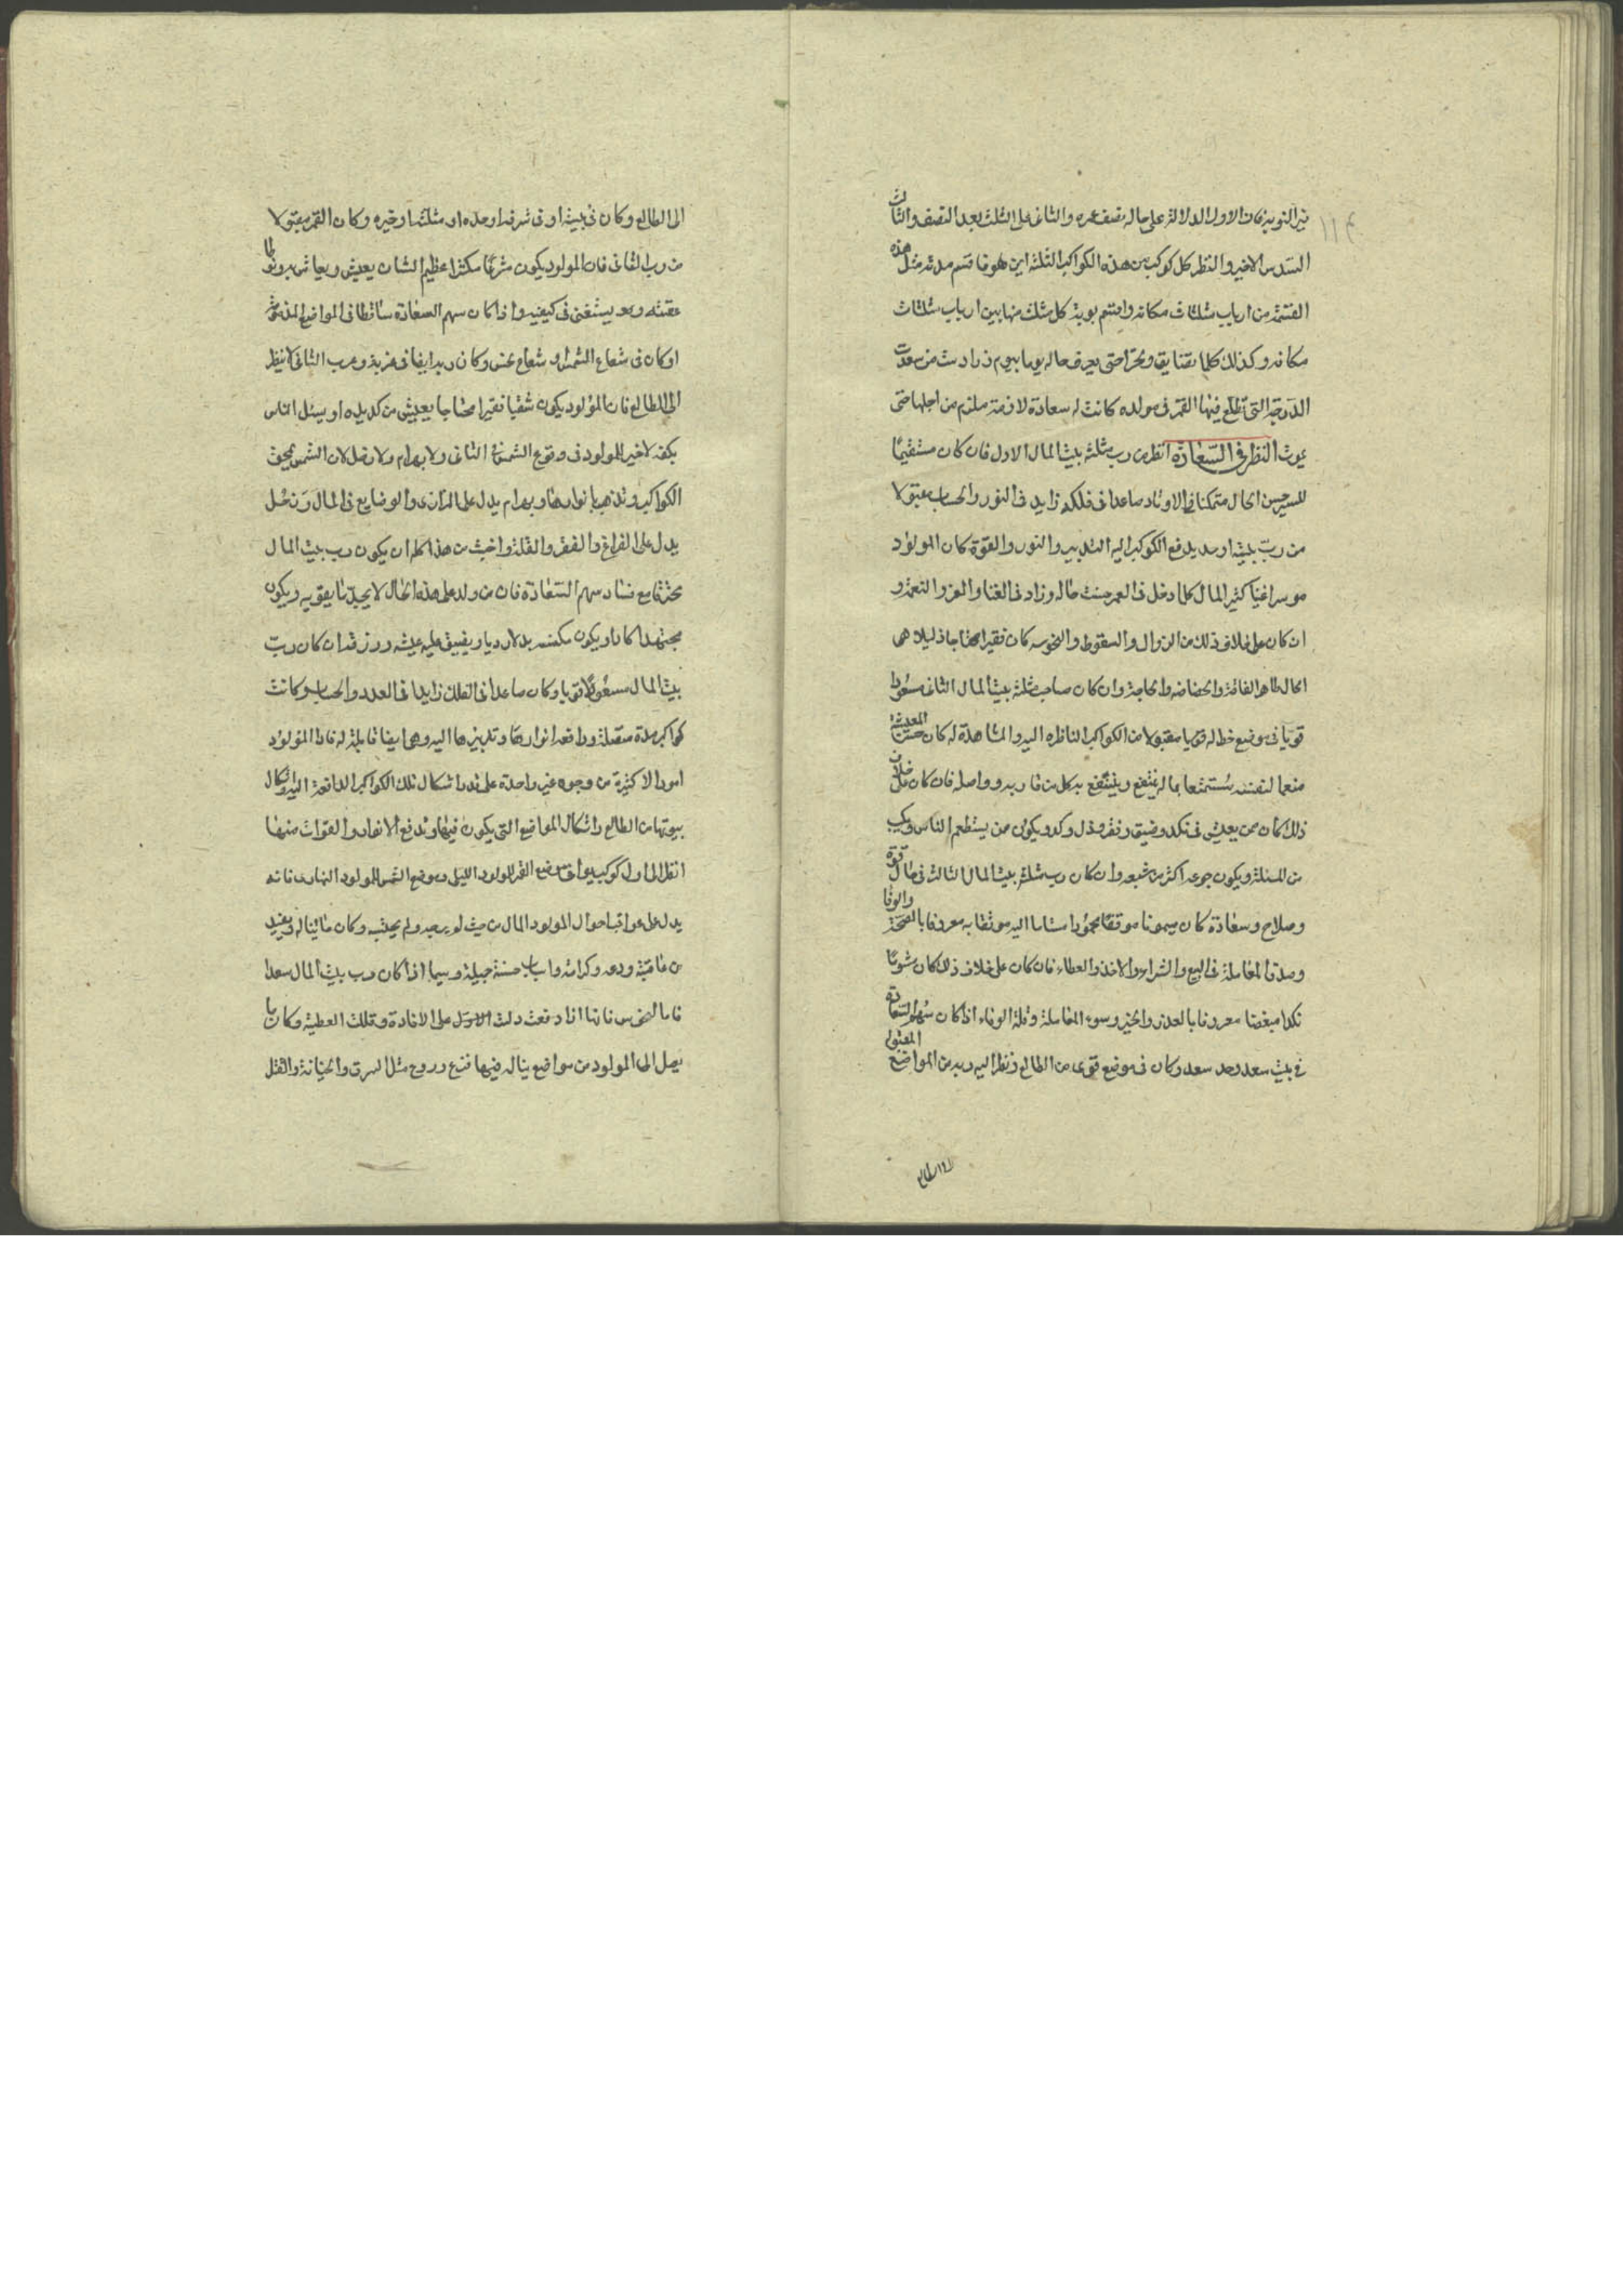 نير النوبة فان الاول الدلالة على حاله نصف عمره والثانى على الثلث بعد النصف والثالث
السدس الاخير والنظر كل كوكب من هذه الكواكب الثلثة اين هو فاقسم مدته مثل هذه
القسمة من ارباب مثلثات مكانه واقسم نوبة كل مثلث منها بين ارباب مثلثات
مكانه وكذلك كلما تضايق وتحرا حتى يعرف حاله يوما بيوم زرادشت من سعدت
الدرجة التى تطلع فيها القمر فى مولده كانت له سعادة لازمة ملزم من اجلها حتى
يموت النظر فى السعادة انظر من رب مثلثة بيت المال الاول فان كان مستقيما
للسير حسن الحال متمكنا فى الاوتاد صاعدا فى فلكه زايد فى النور والحساب مقبولا
من رب بيته او يدفع الكوكب اليه التدبير والنور والقوة كان المولود
موسرا غنيا كثير المال كلما دخل فى العمر حسنت حاله وزاد فى الغنا والعز والنعمة و
ان كان على خلاف ذلك من الزوال والسقوط والنحوسه كان فقيرا محتاجا ذليلا هى
الحال ظاهر الفاقة والخصاصه والحاجة وان كان صاحب مثلثة بيت المال الثانى مسعودا
قويا فى موضع خط له قويا مقبولا من الكواكب الناظره اليه والمشاهدة له كان حسن المعيشة
منعما لنفسه مستمتعا بماله ينتفع وينتفع به كل من قاربه وواصله فان كان على خلاف
ذلك كان ممن يعيش فى نكد وضيق وفقر وذل وكد ويكون ممن يستطعم الناس ويكسب
من المسئلة ويكون جوعه اكثر من شبعه وان كان رب مثلثة بيت المال الثالث فى حال قوة
وصلاح وسعادة كان ميمونا موفقا محمودا مستاما اليه موثقا به معروفا بالصحة والوفا
وصدق المعاملة فى البيع والشراء والاخذ والعطاء فان كان على خلاف ذلك كان مشوما
نكدا مبغضا معروفا بالغدر والخبز وسوء المعاملة وقلة الوفاء اذا كان سهم السعادة
فى بيت سعد وحد سعد وكان فى موضع قوى من الطالع ونظر اليه ربه من المواضع المقبولة
الى الطالع
الى الطالع وكان فى بيته او فى شرفه او حده او مثلثه او خيره وكان القمر مقبولا
من رب الثانى فان المولود يكون مكثرا عظيم الشان يعيش
وهو يستغنى فى كيفيه واذا كان سهم السعادة ساقطا فى المواضع المذمومة
او كان فى شعاع الشمس او شعاع نحس وكان ربه ايضا فى غربة ورب الثانى لا ينظر
الى الطالع فان المولود يكون شقيا فقيرا محتاجا يعيش من كد يده او يسئل الناس
بكفه لا خير للمولود فى وقوع الشمس فى الثانى ولا بهرام ولا زحل لان الشمس يحرق
الكواكب وتذهب بانوارها وبهرام يدل على الوضايع فى المال وزحل
يدل على الفراغ والفقر والقلة واخبث من هذا كله ان يكون رب بيت المال
محترقا مع فساد سهم السعادة فان من ولد على هذه الحال لا يجد ما يقويه ويكون
مجتهدا كادا ويكون مكسبه رديا ويضيق عليه عيشه ورزقه ان كان رب
بيت المال مسعودا قويا وكان صاعدا فى الفلك زايدا فى العدد والحساب وكانت
كواكب عدة متصلة ودافعه انوارها وتدبيرها اليه وهو ايضا قابلة له فاد المولود
اموالا كثيرة من وجوه غير واحدة على قدر اشكال تلك الكواكب الدافعة اليه واشكال
بيوتها من الطالع واشكال المواضع التى يكون فيها وتدفع الانوار والقوات منها
انظر الى اول كوكب يوافق موضع القمر للمولود الليلى وموضع الشمس للمولود النهارى فانه
يدل على عواقب احوال المولود المال من حيث لم يرجه ولم يحتسبه وكان ما يناله ويفيد
من عافية ودعه وكرامة واسباب حسنة جميلة وسيما اذا كان رب بيت المال سعدا
فاما النحوس فانها اذا دفعت دلت الاول على الافادة وتلك العطية وكان ما
يصل الى المولود من مواضع يناله فيها فزع وروع مثل السرق والخيانة والقتل